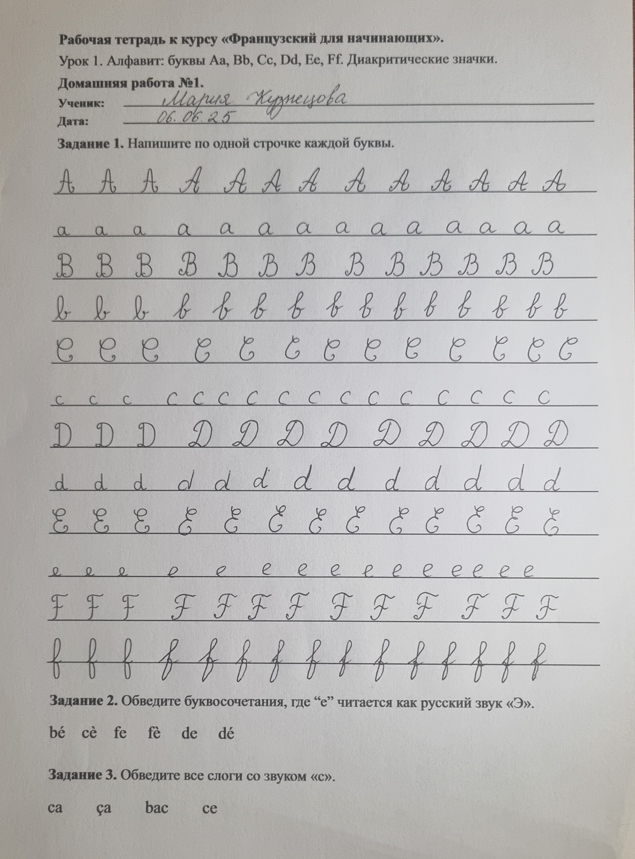 Рабочая тетрадь к курсу «Французский для начинающих».
Урок 1. Алфавит: буквы Aa, Bb, Cc, Dd, Ee, Ff. Диакритические значки.
Домашняя работа №1.
Ученик: Мария Кузнецова
Дата: 06.06.25
Задание 1. Напишите по одной строчке каждой буквы.
A A A A A A A A A A A A A
a a a a a a a a a a a a a a
B B B B B B B B B B B B B
b b b b b b b b b b b b b b b
C C C C C C C C C C C C C
c c c c c c c c c c c c c c c c
D D D D D D D D D D D D
d d d d d d d d d d d d d
E E E E E E E E E E E E E
e e e e e e e e e e e e e e e
F F F F F F F F F F F F F
f f f f f f f f f f f f f f f
Задание 2. Обведите буквосочетания, где “e” читается как русский звук «Э».
bé cè fe fè de dé
Задание 3. Обведите все слоги со звуком «с».
ca ça bac ce